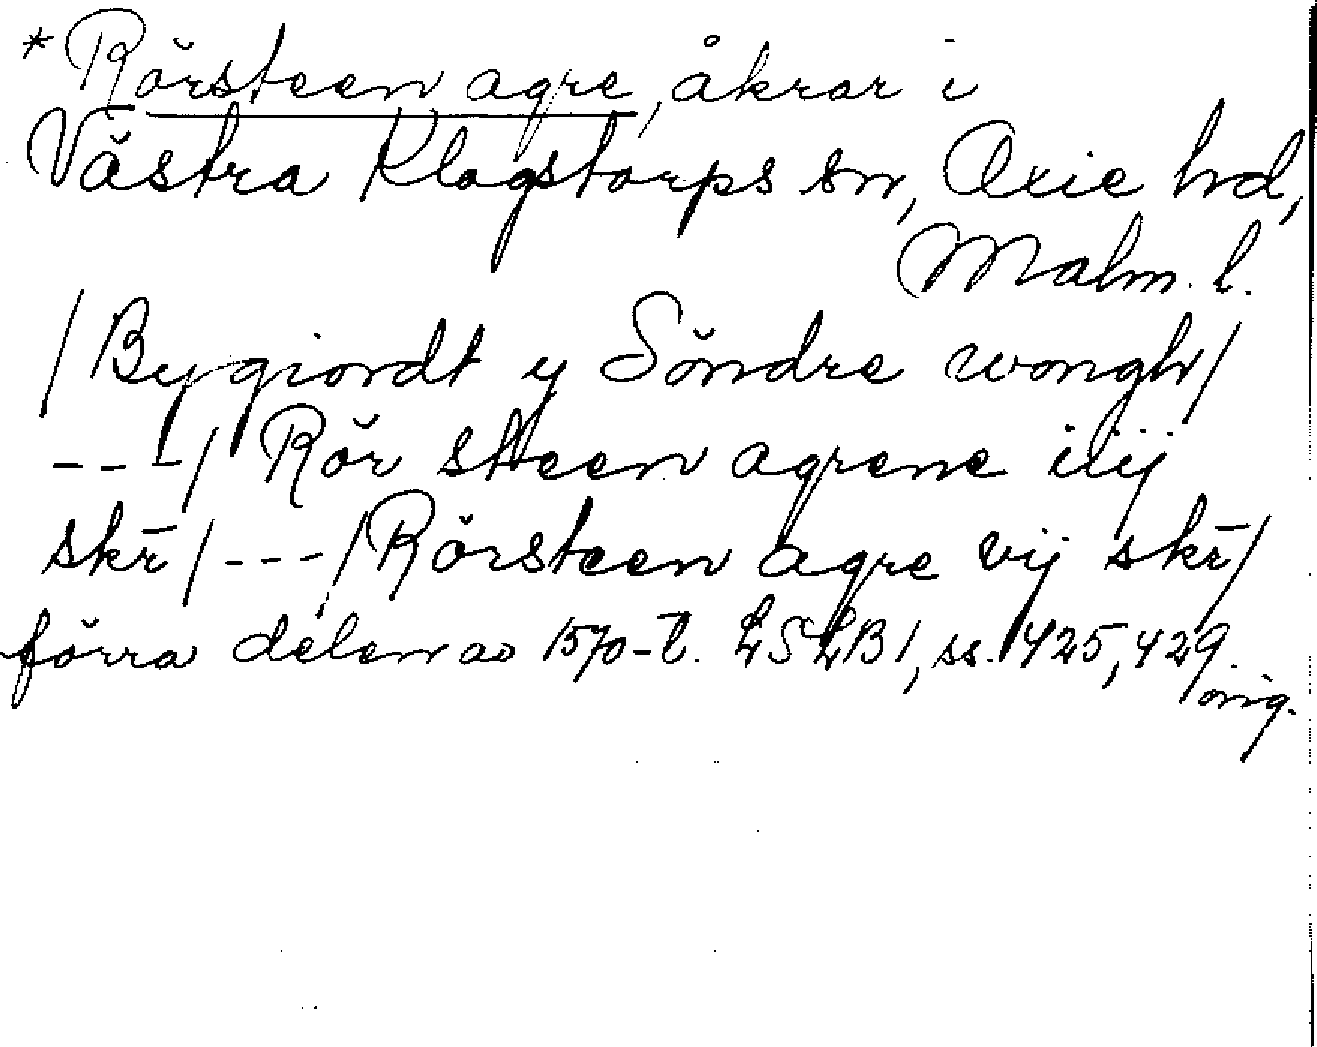 *Rörsteen agre, åkrar i
Västra Klagstorps sn, Oxie hd,
Malm. l.
/Bygiordt y Söndre wongh/
---/ Rör steen agrene iiij
skr̄/---/Rörsteen agre vij skr̄/
förra delen av 1570-t. LSLB1, ss. 425, 429.
orig.